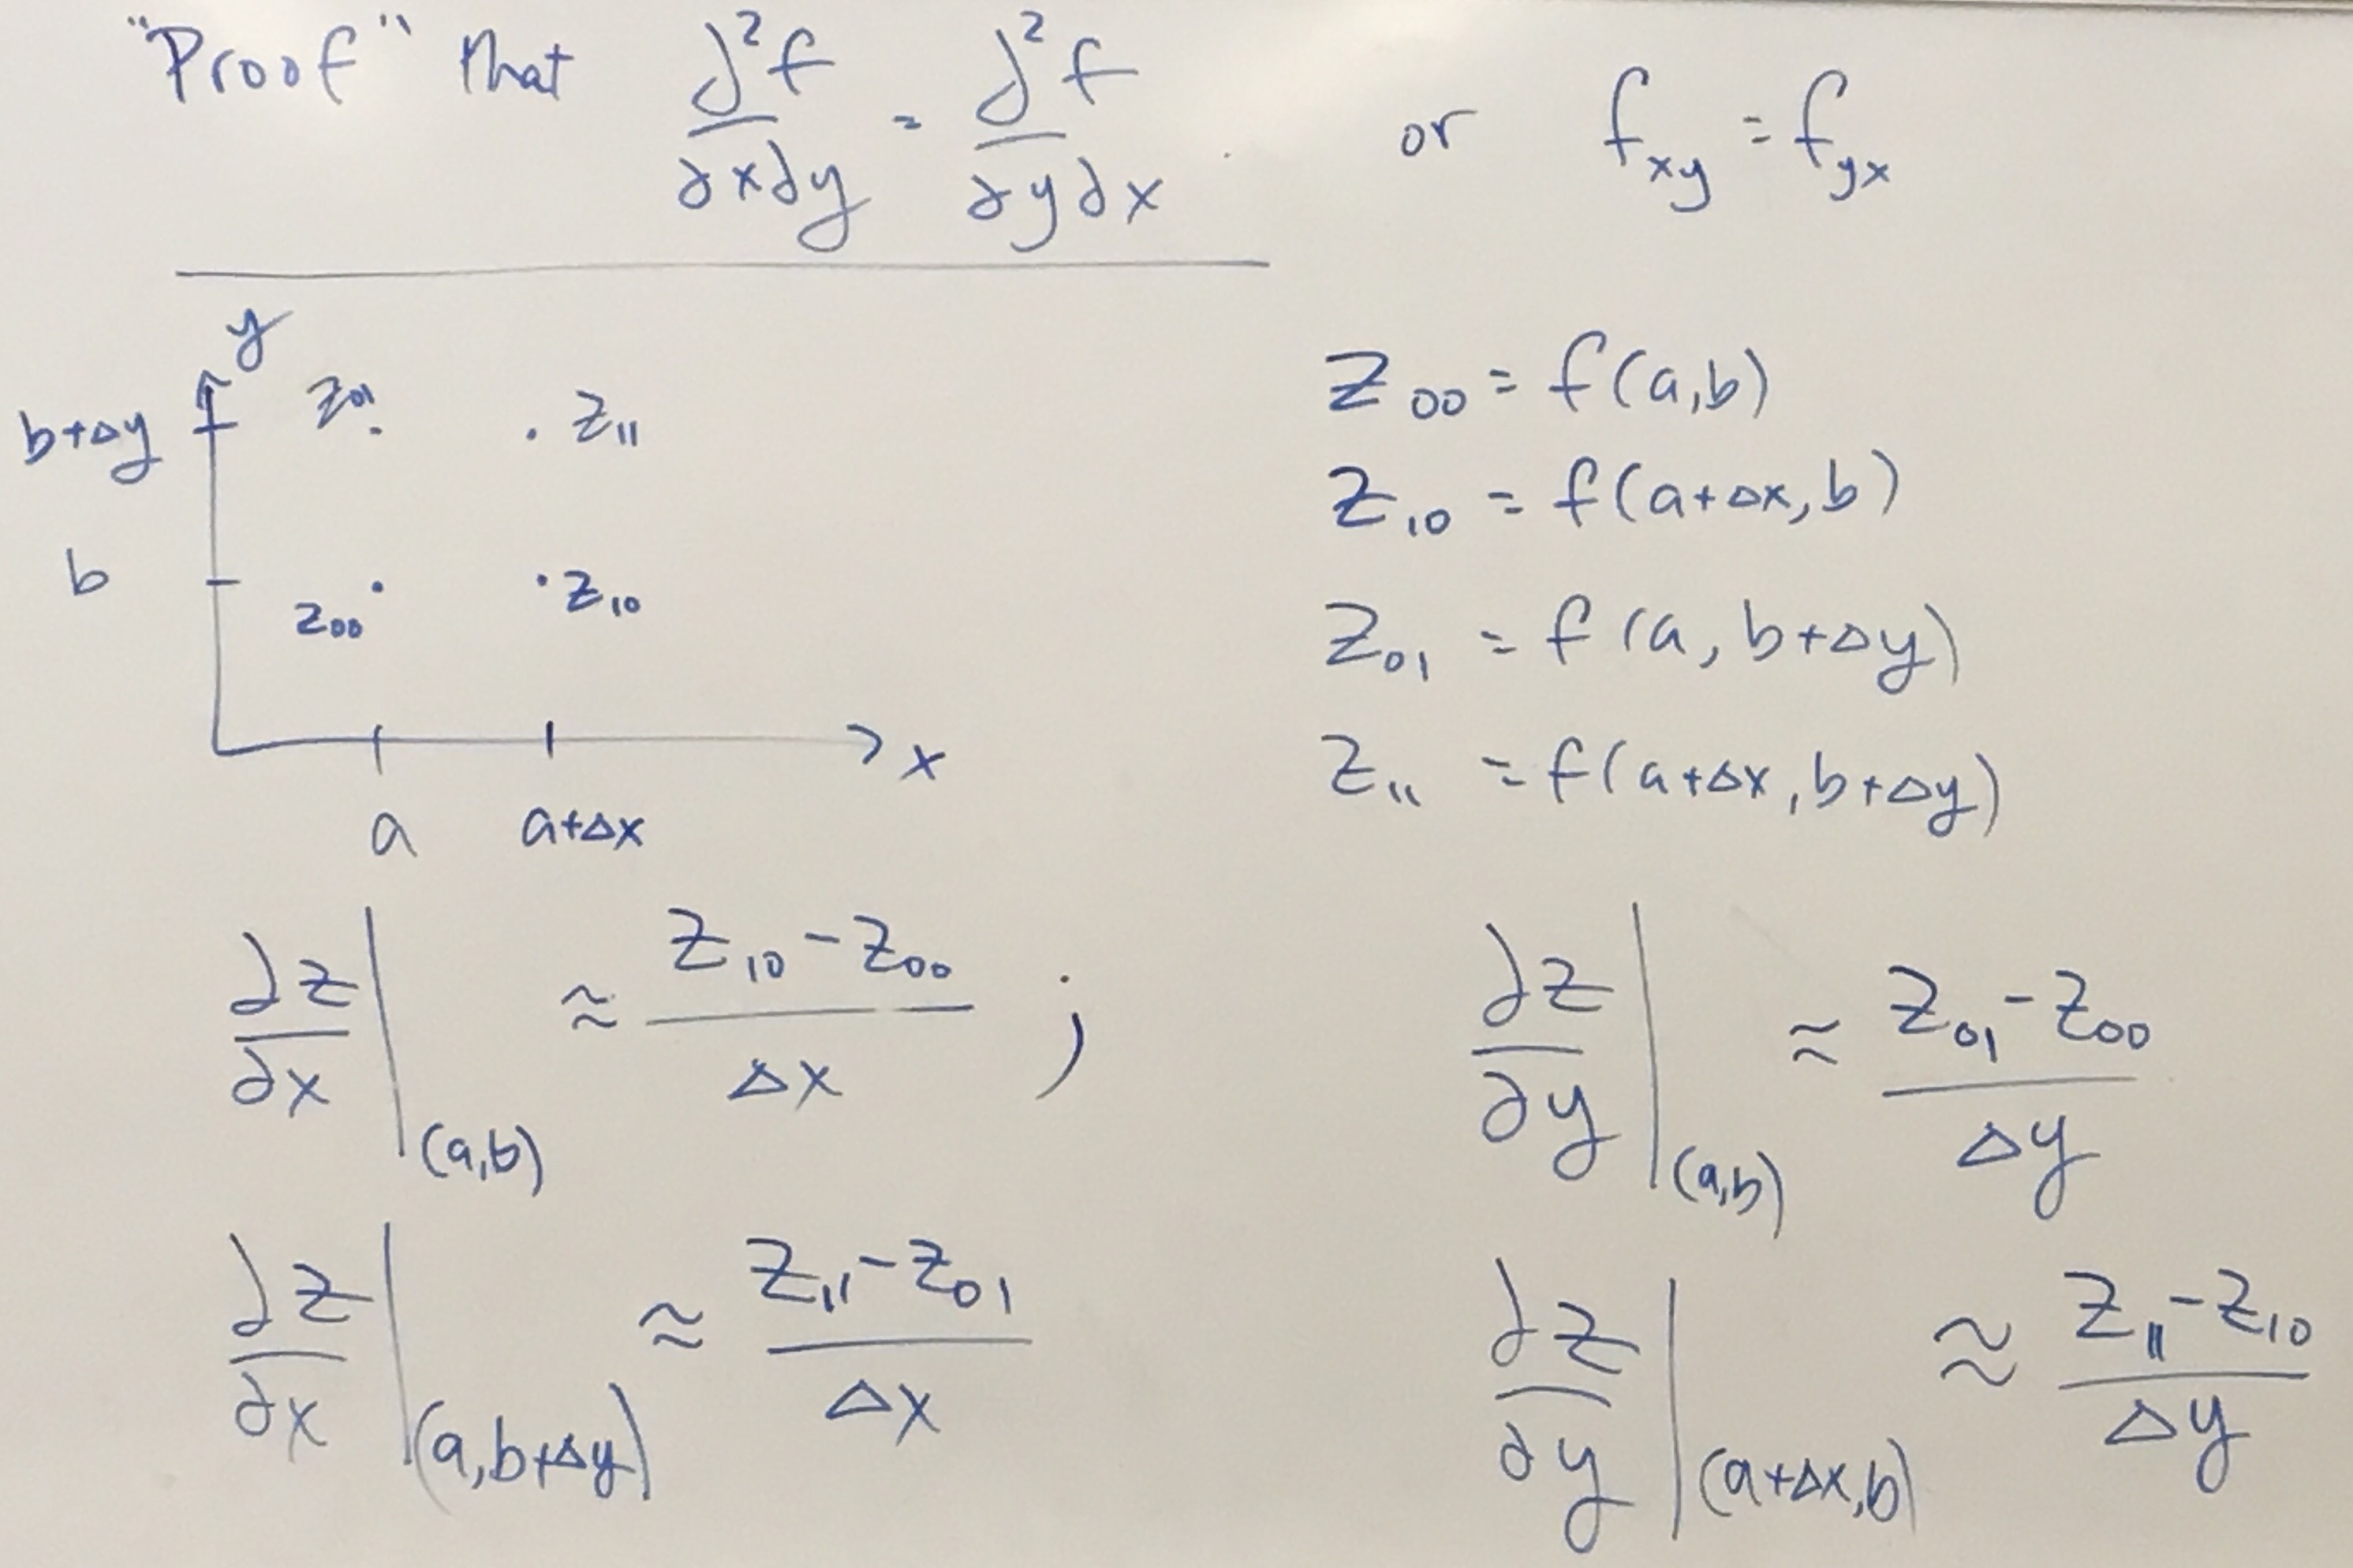 "Proof" that ∂²f/∂x∂y = ∂²f/∂y∂x or f_xy = f_yx
y
b+Δy z₀₁ z₁₁
b z₀₀ z₁₀
x
a a+Δx
z₀₀ = f(a,b)
z₁₀ = f(a+Δx,b)
z₀₁ = f(a, b+Δy)
z₁₁ = f(a+Δx,b+Δy)
∂z/∂x |(a,b) ≈ (z₁₀-z₀₀)/Δx ; ∂z/∂y |(a,b) ≈ (z₀₁-z₀₀)/Δy
∂z/∂x |(a,b+Δy) ≈ (z₁₁-z₀₁)/Δx ∂z/∂y |(a+Δx,b) ≈ (z₁₁-z₁₀)/Δy